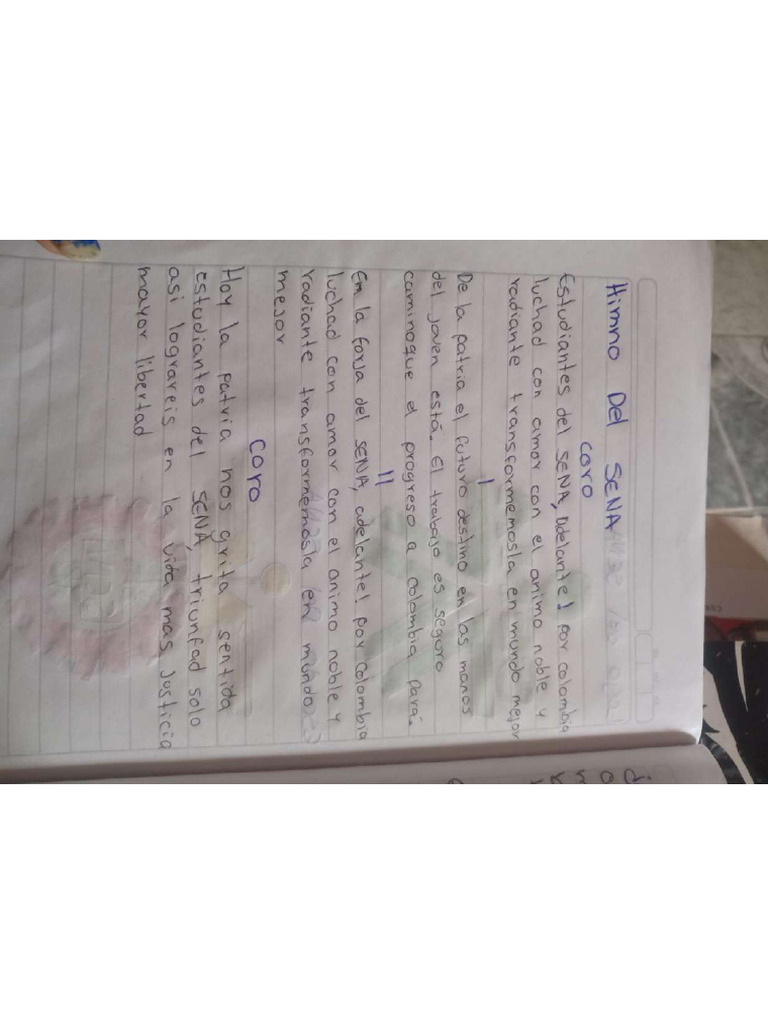 Himno Del SENA
coro
Estudiantes del SENA, adelante! por colombia
luchad con amor con el animo noble y
radiante transformemosla en mundo mejor
I
De la patria el futuro destino en las manos
del joven está. El trabajo es seguro
camino que el progreso a colombia para.
II
En la forja del SENA, adelante! por Colombia
luchad con amor con el animo noble y
radiante transformemosla en mundo
mejor
coro
Hoy la patria nos grita sentida
estudiantes del SENA, triunfad solo
asi lograreis en la vida mas justicia
mayor libertad